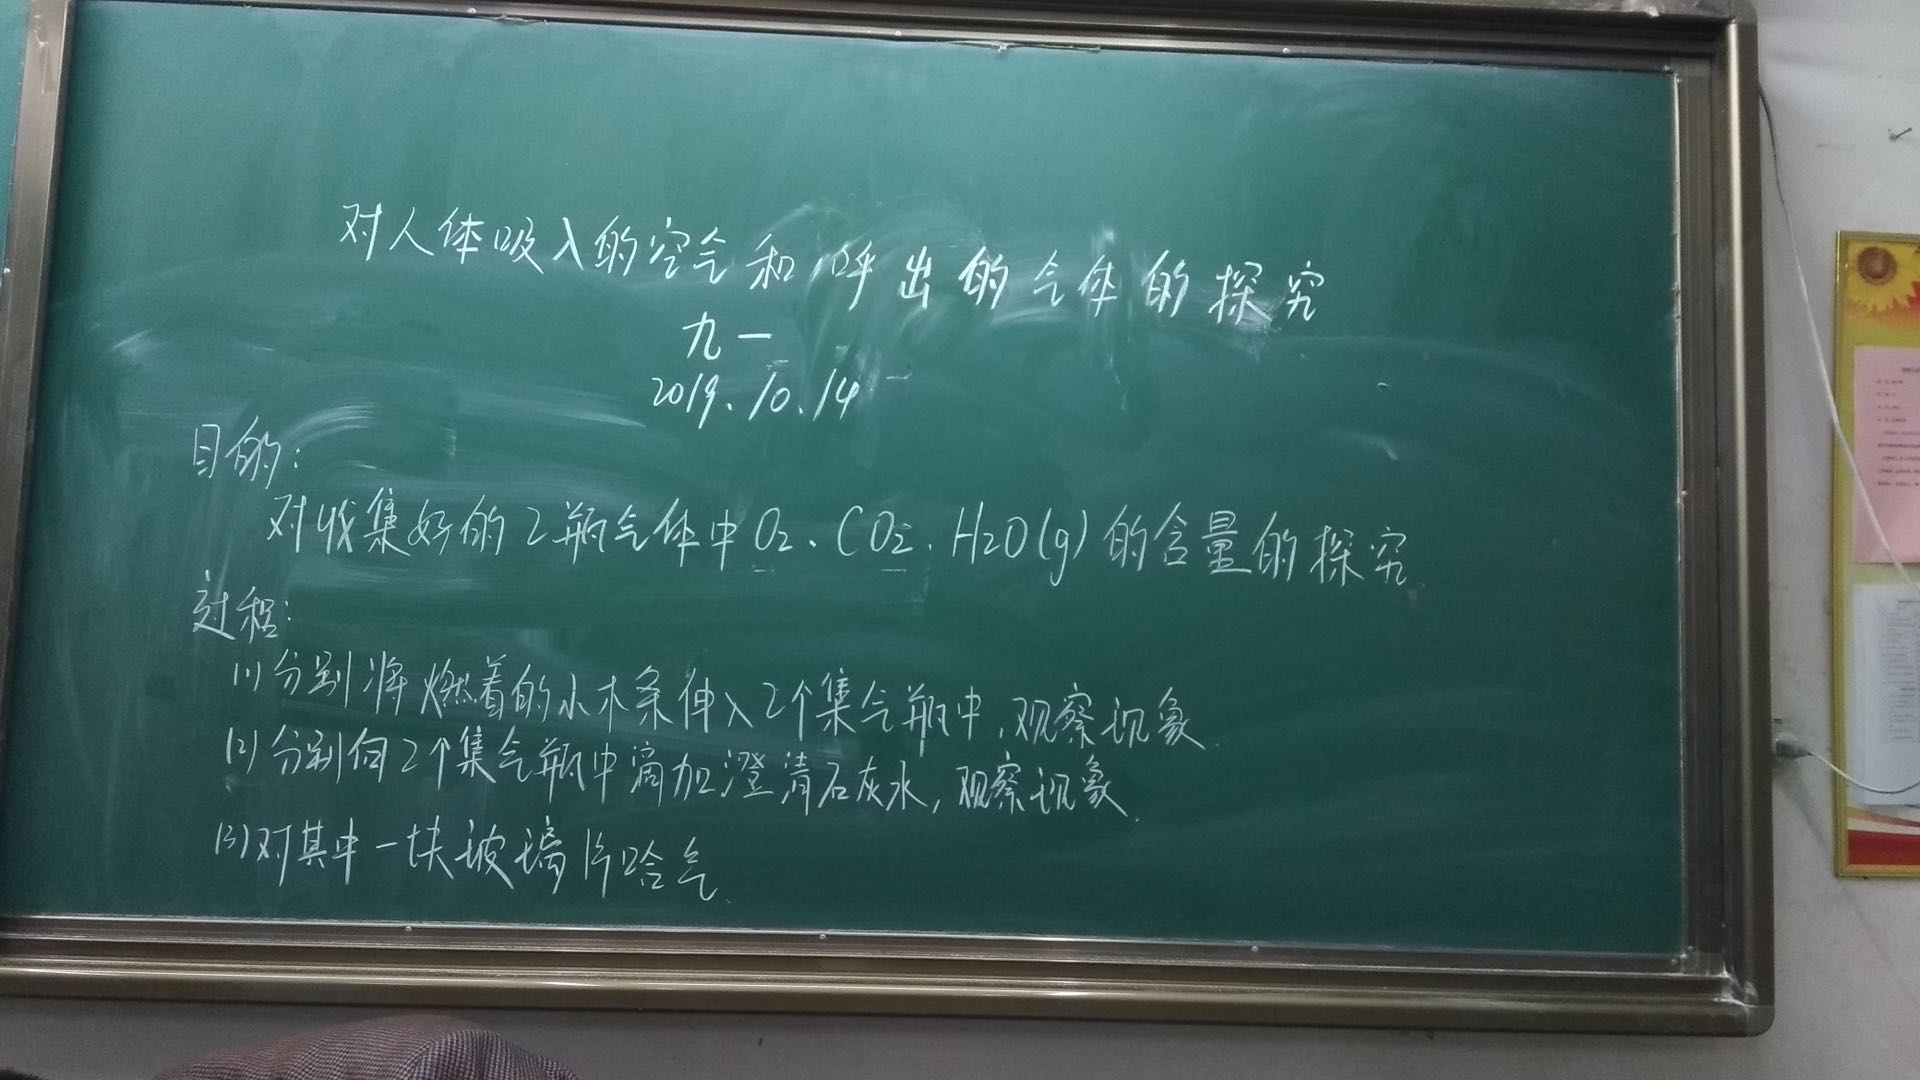 对人体吸入的空气和呼出的气体的探究
九一
2019.10.14
目的:
对收集好的2瓶气体中O₂、CO₂、H₂O(g)的含量的探究
过程:
(1)分别将燃着的小木条伸入2个集气瓶中,观察现象.
(2)分别向2个集气瓶中滴加澄清石灰水,观察现象.
(3)对其中一块玻璃片哈气.